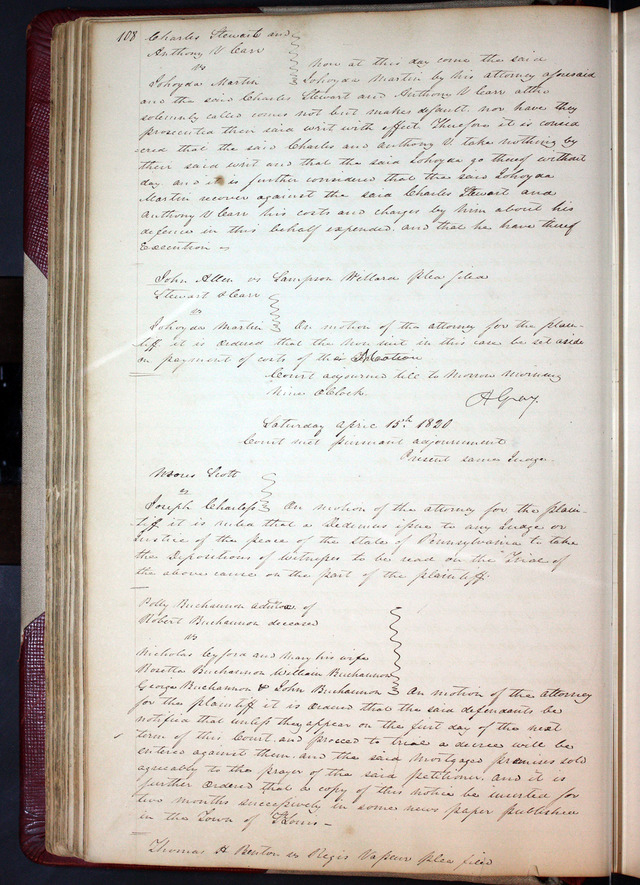 108 Charles Stewart and
Anthony V Carr
vs
Now at this day come the said
Johoyda Martin Johoyda Martin by his attorney aforesaid
and the said Charles Stewart and Anthony V Carr altho
solemnly called comes not but makes default. nor have they
prosecuted their said writ with effect. Therefore it is consid
ered that the said Charles and Anthony V. take nothing by
their said writ and that the said Johoyda go thereof without
day. and it is further considered that the said Johoyda
Martin recover against the said Charles Stewart and
Anthony V Carr his costs and charges by him about his
defence in this behalf expended. and that he have thereof
Execution
John Allen vs Sampson Willard plea filed
Stewart & Carr
vs
Johoyda Martin On motion of the attorney for the plain-
tiff it is ordered that the non suit in this case be set aside
on payment of costs of this Motion
Court adjourned till to Morrow Morning
Nine O Clock.
A Gray.
Saturday April 15th 1820
Court met pursuant adjournment
Present same Judge
Moses Scott
vs
Joseph Charless On motion of the attorney for the plain-
tiff it is ruled that a Dedimus issue to any Judge or
Justice of the peace of the State of Pennsylvania to take
the Depositions of Witnesses to be read on the Trial of
the above cause on the part of the plaintiff.
Polly Buchannon admrx of
Robert Buchannon deceased
vs
Nicholas Cyford and Mary his wife
Rosetta Buchannon William Buchannon
George Buchannon & John Buchannon On motion of the attorney
for the plaintiff it is ordered that the said defendants be
notified that unless they appear on the first day of the next
term of this Court and proceed to trial a decree will be
entered against them. and the said Mortgaged premises sold
agreeably to the prayer of the said petitioner. and it is
further ordered that a copy of this notice be inserted for
two months successively in some news paper published
in the Town of St Louis
Thomas H Benton vs Regis Vasseur plea filed